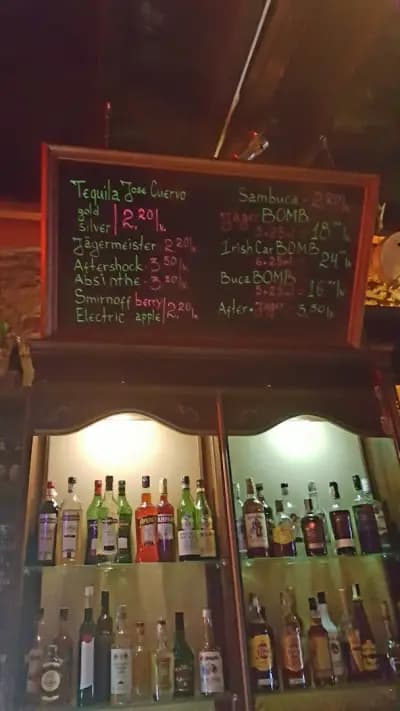 Tequila Jose Cuervo
gold
silver 2.20 lv.
Jägermeister 2.20 lv.
Aftershock - 3.50 lv.
Absinthe - 3.50 lv.
Smirnoff berry
Electric apple 2.20 lv.
Sambuca - 2.20 lv.
Jäger BOMB
5 x 25ml = 18.00 lv.
Irish Car BOMB
24.00 lv.
Buca BOMB
5 x 25ml = 16.00 lv.
After + Jäger 3.50 lv.